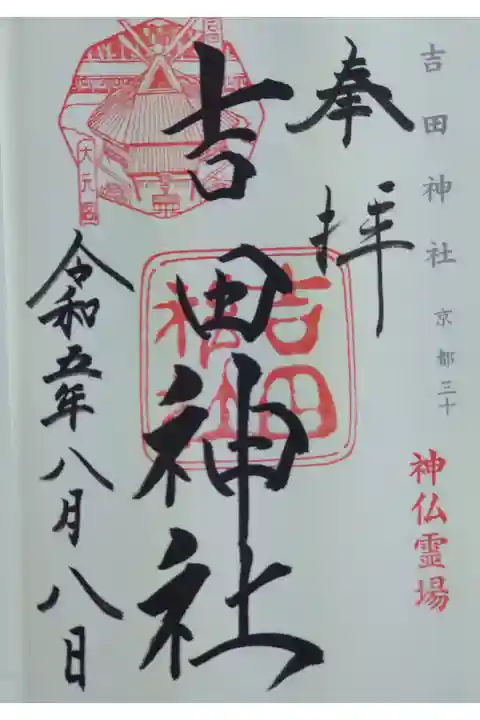 吉田神社 京都三十
神仏霊場
奉拝
吉田神社
吉田
神社
大元宮
令和五年八月八日